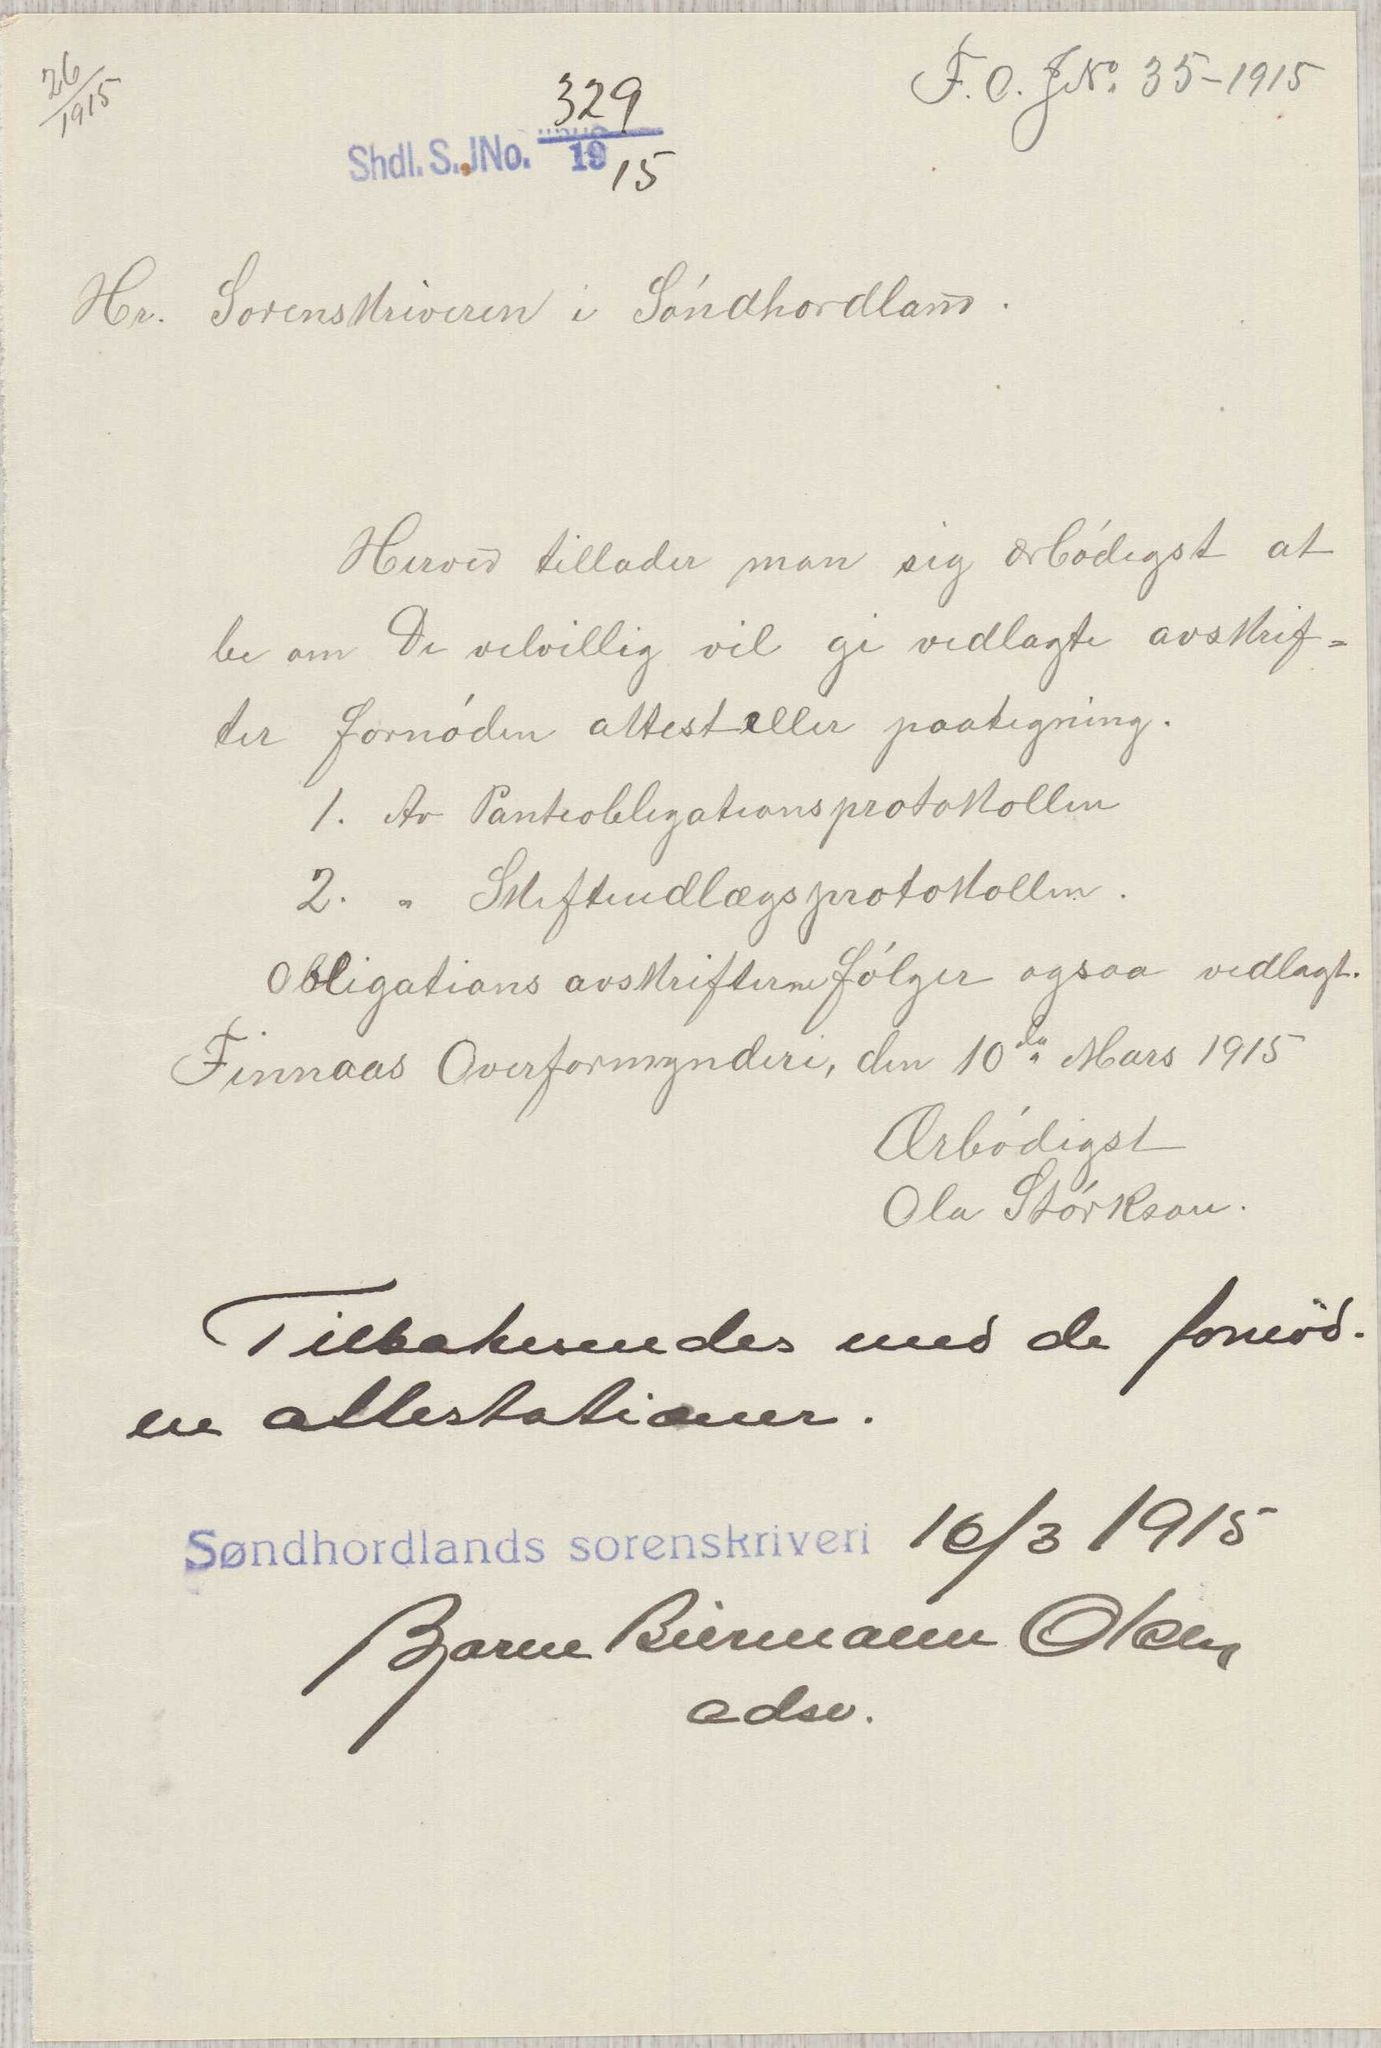 26/1915
F. O. J No. 35-1915
329
Shdl. S. JNo. 19 15
Hr. Sorenskriveren i Söndhordland.
Herved tillader man sig ærbödigst at
be om De velvillig vil gi vedlagte avskrif=
ter fornöden attest eller paategning.
1. Av Panteobligationsprotokollen
2. " Skifteudlægsprotokollen.
Obligations avskrifterne fölger ogsaa vedlagt.
Finnaas Overformynderi, den 10de Mars 1915
Ærbödigst
Ola Störkson.
Tilbakesendes med de fornöd-
ne attestationer.
Søndhordlands sorenskriveri 16/3 1915
Bjarne Biermann Olsen
edsv.